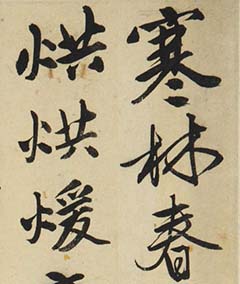 寒林春
烘烘煖